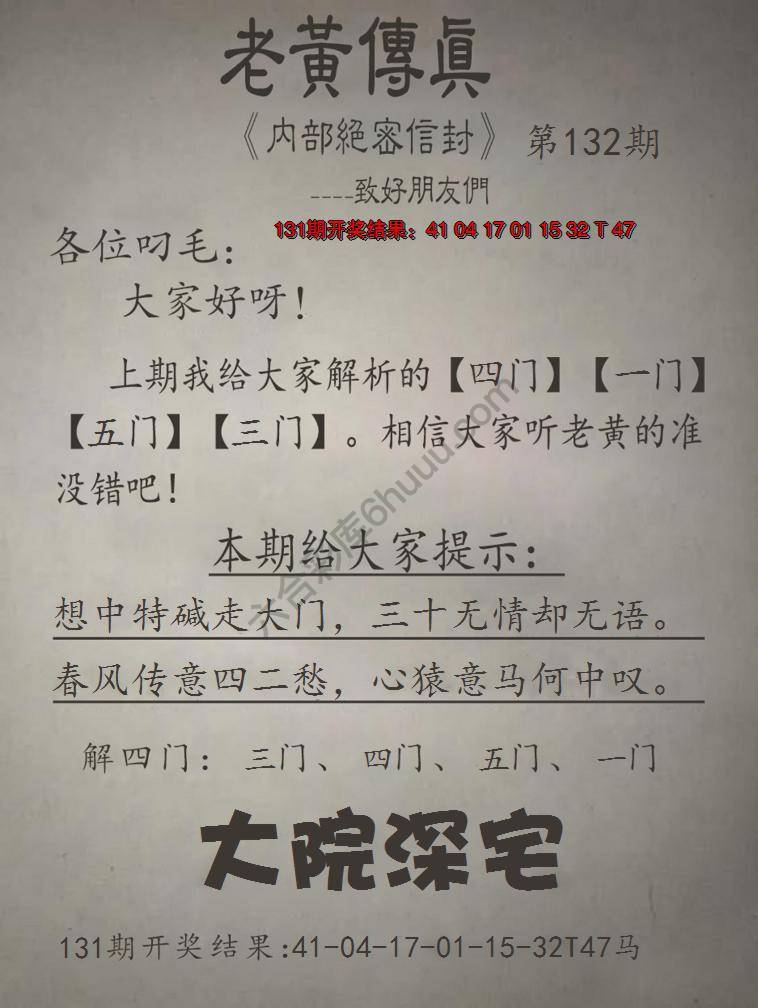 老黃傳眞
《内部絕密信封》 第132期
----致好朋友們
131期开奖结果：41 04 17 01 15 32 T 47
各位叼毛：
大家好呀！
上期我给大家解析的【四门】【一门】
【五门】【三门】。相信大家听老黄的准
没错吧！
本期给大家提示：
想中特碱走大门，三十无情却无语。
春风传意四二愁，心猿意马何中叹。
解四门：三门、四门、五门、一门
大院深宅
131期开奖结果:41-04-17-01-15-32T47马
六合彩库6huuu.com